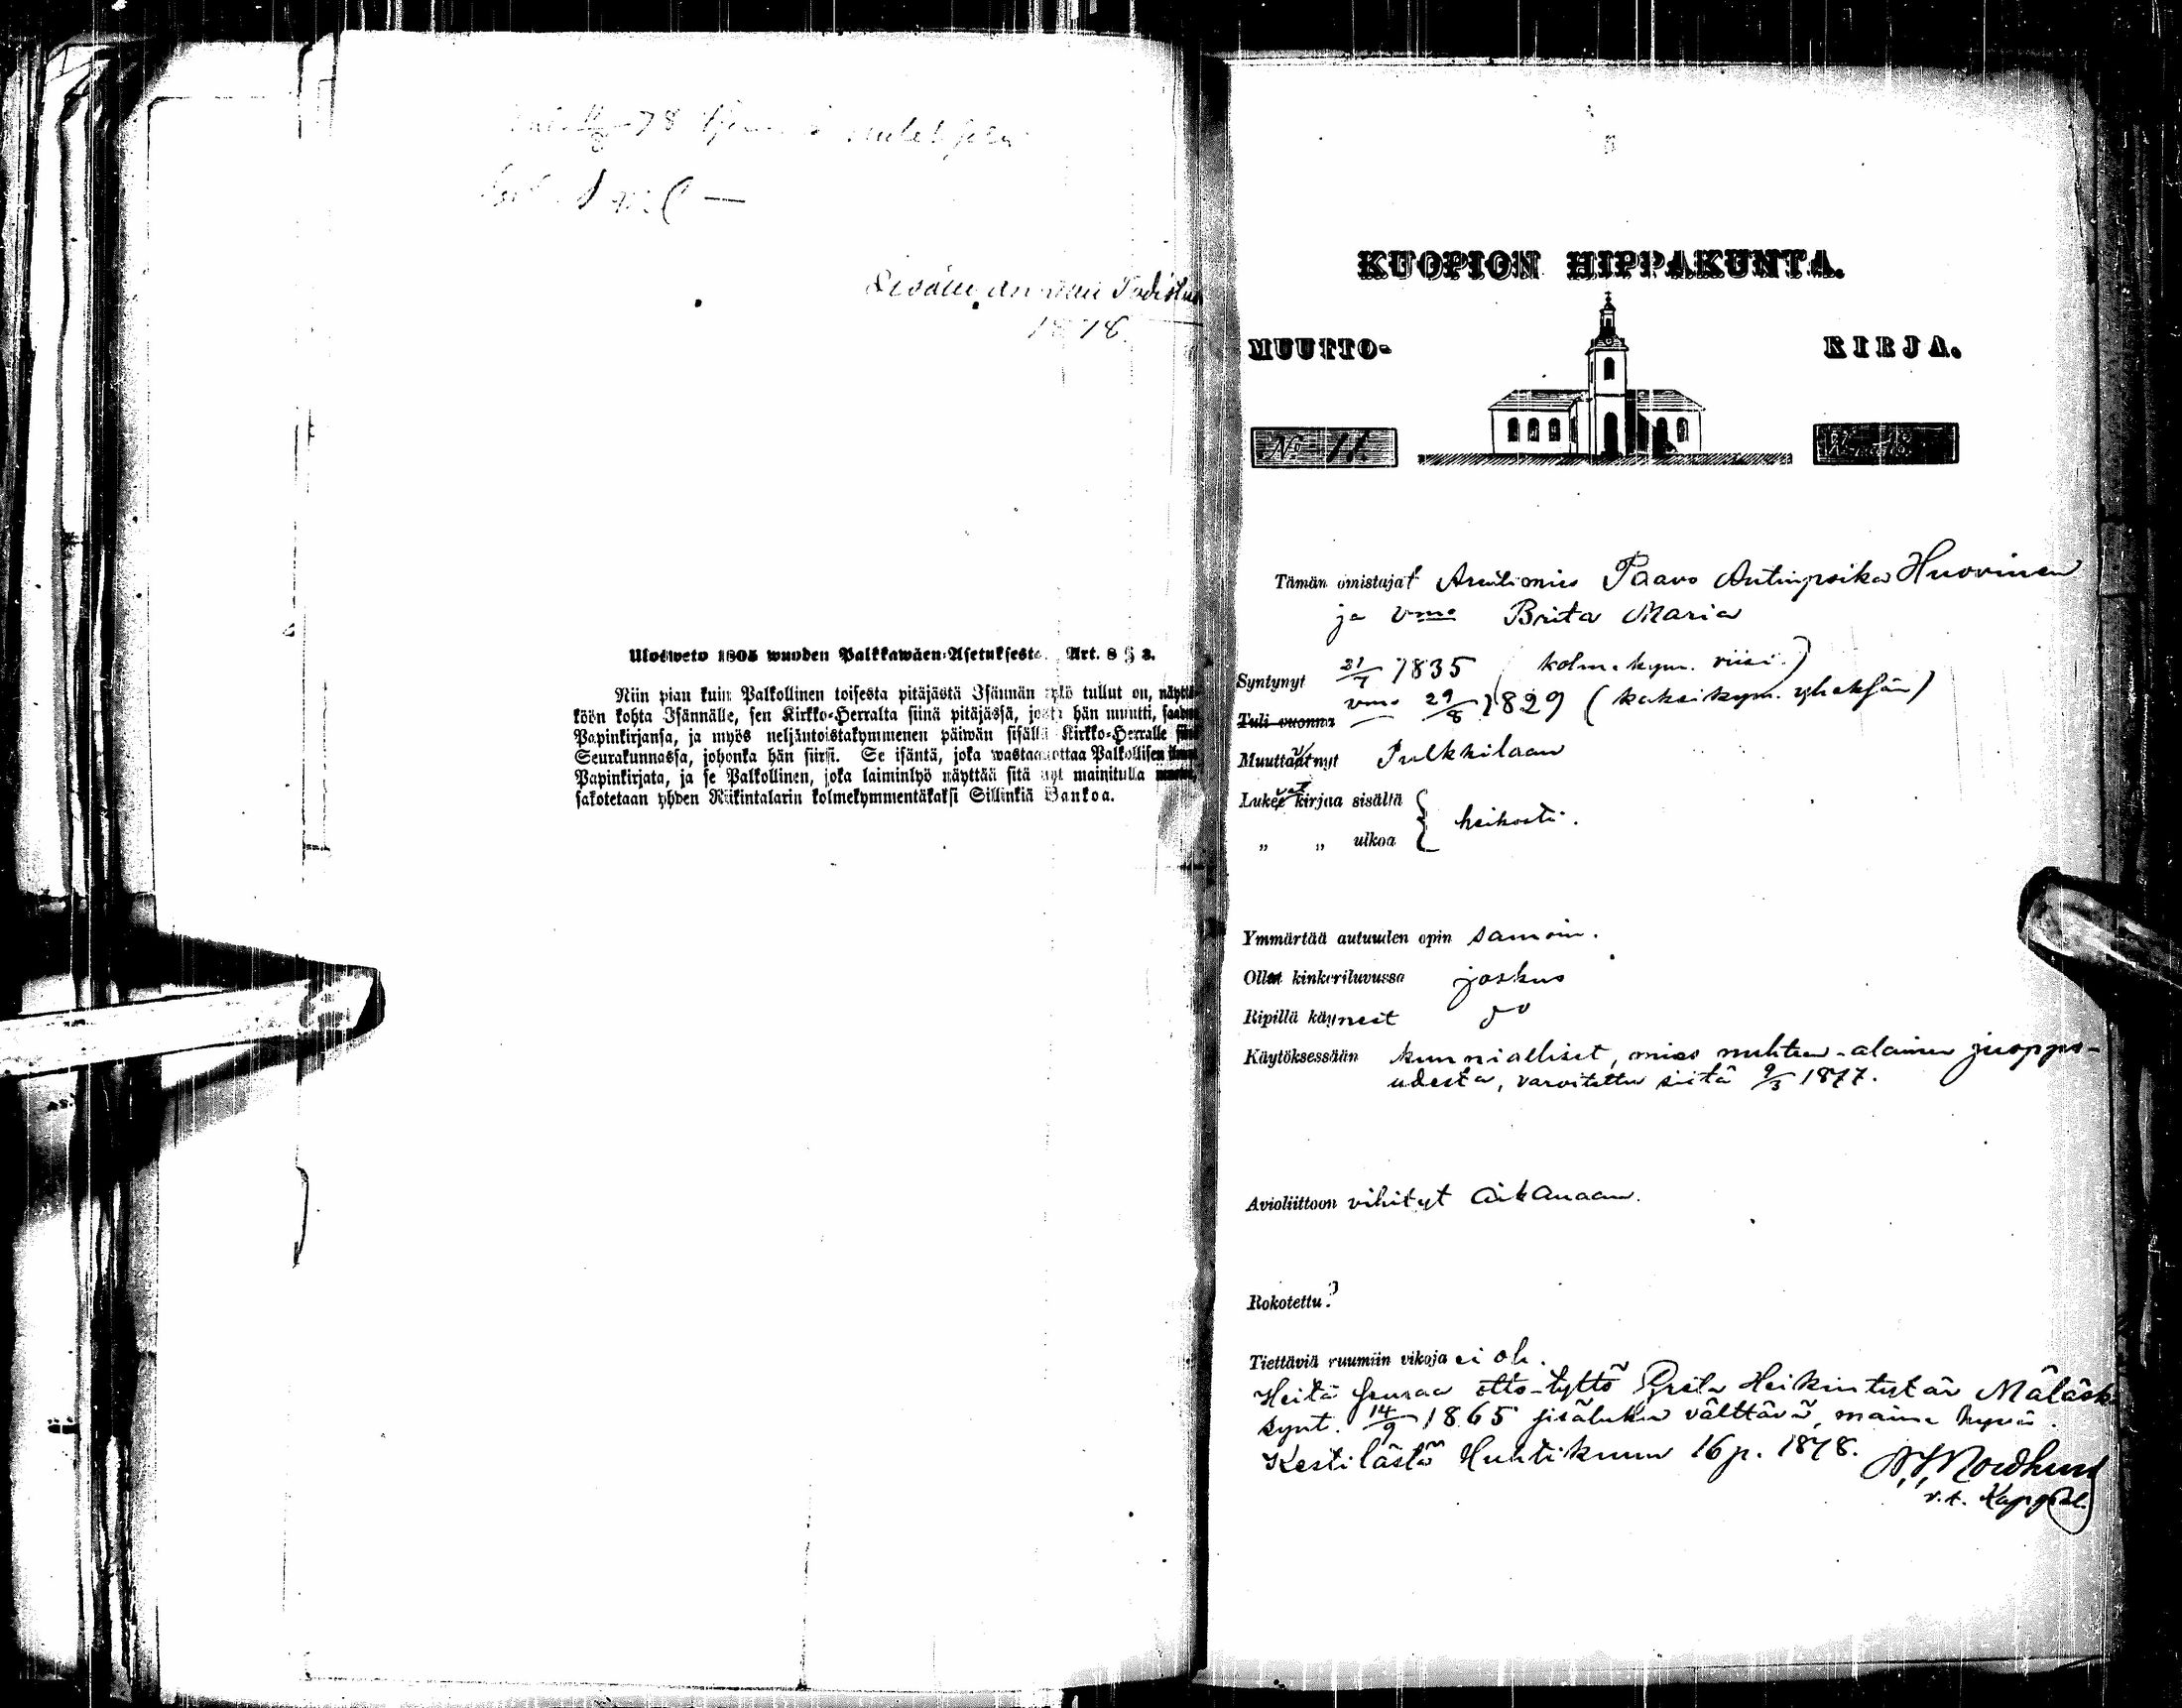 78
Todistus
1878.
Ulosweto 1805 wuoden Palkkawäen-Asetuksesta. Art. 8 § 3.
Niin pian kuin Palkollinen toisesta pitäjästä Isännän tykö tullut on, näyttä-
köön kohta Isännälle, sen Kirkko-Herralta siinä pitäjässä, josta hän muutti, saadun
Papinkirjansa, ja myös neljäntoistakymmenen päiwän sisällä Kirkko-Herralle siinä
Seurakunnassa, johonka hän siirsi. Se isäntä, joka wastaanottaa Palkollisen ilman
Papinkirjata, ja se Palkollinen, joka laiminlyö näyttää sitä nyt mainitulla
sakotetaan yhden Riikintalarin kolmekymmentäkaksi Sillinkiä Bankoa.
KUOPION HIPPAKUNTA.
MUUTTO- KIRJA.
N:o 11.
Tämän omistajat Paavo Antinpoika Huovinen
ja vmo Brita Maria
Syntynyt 21/7 1835 (kolme kym. viisi.)
Tuli vuonna vmo 29/8 1829 (kaksikym. yheksän)
Muuttanut Pulkkilaan
Lukevat kirjaa sisältä
„ „ ulkoa } heikosti.
Ymmärtää autuuden opin samoin.
Olleet kinkeriluvussa joskus
Ripillä käyneet
Käytöksessään kunnialliset, mies nuhteen-alainen juoppo-
udesta, varoitettu siitä 9/3 1877.
Avioliittoon vihityt aikanaan.
Rokotettu?
Tiettäviä ruumiin vikoja ei ole.
Heitä seuraa otto-tyttö Greta Heikintytär Mäläsk
synt. 14/9 1865 sisäluku välttävä, maine hyvä.
Kestilästä Huhtikuun 16 p. 1878.
Nordlund
v.t. Kappal.